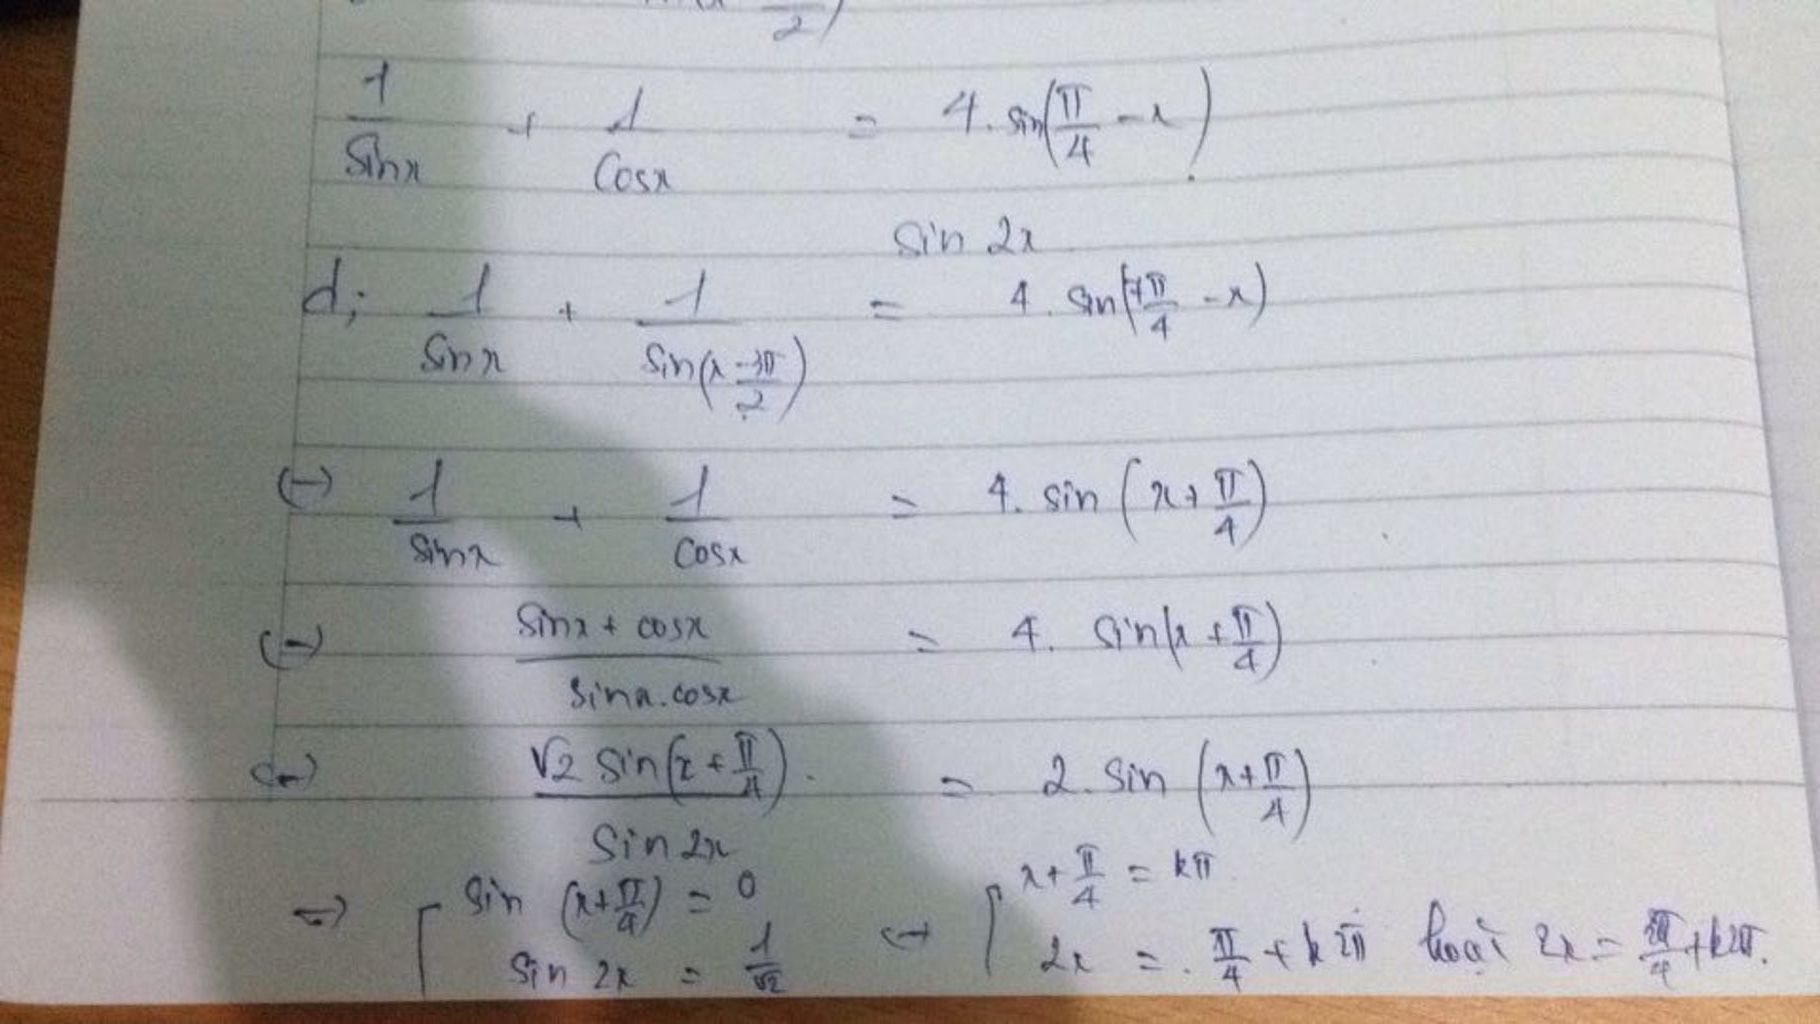 1/sinx + 1/cosx = 4.sin(π/4 - x)
sin 2x
d; 1/sinx + 1/sin(x - 3π/2) = 4. sin(7π/4 - x)
(-) 1/sinx + 1/cosx = 4. sin (x + π/4)
(-) sinx + cosx / sinx.cosx = 4. sin(x + π/4)
√2 sin(x + π/4) / sin 2x = 2. sin (x + π/4)
=) [ sin (x + π/4) = 0 ↔ [ x + π/4 = kπ
sin 2x = 1/√2 2x = π/4 + k2π hoặc 2x = 3π/4 + k2π.